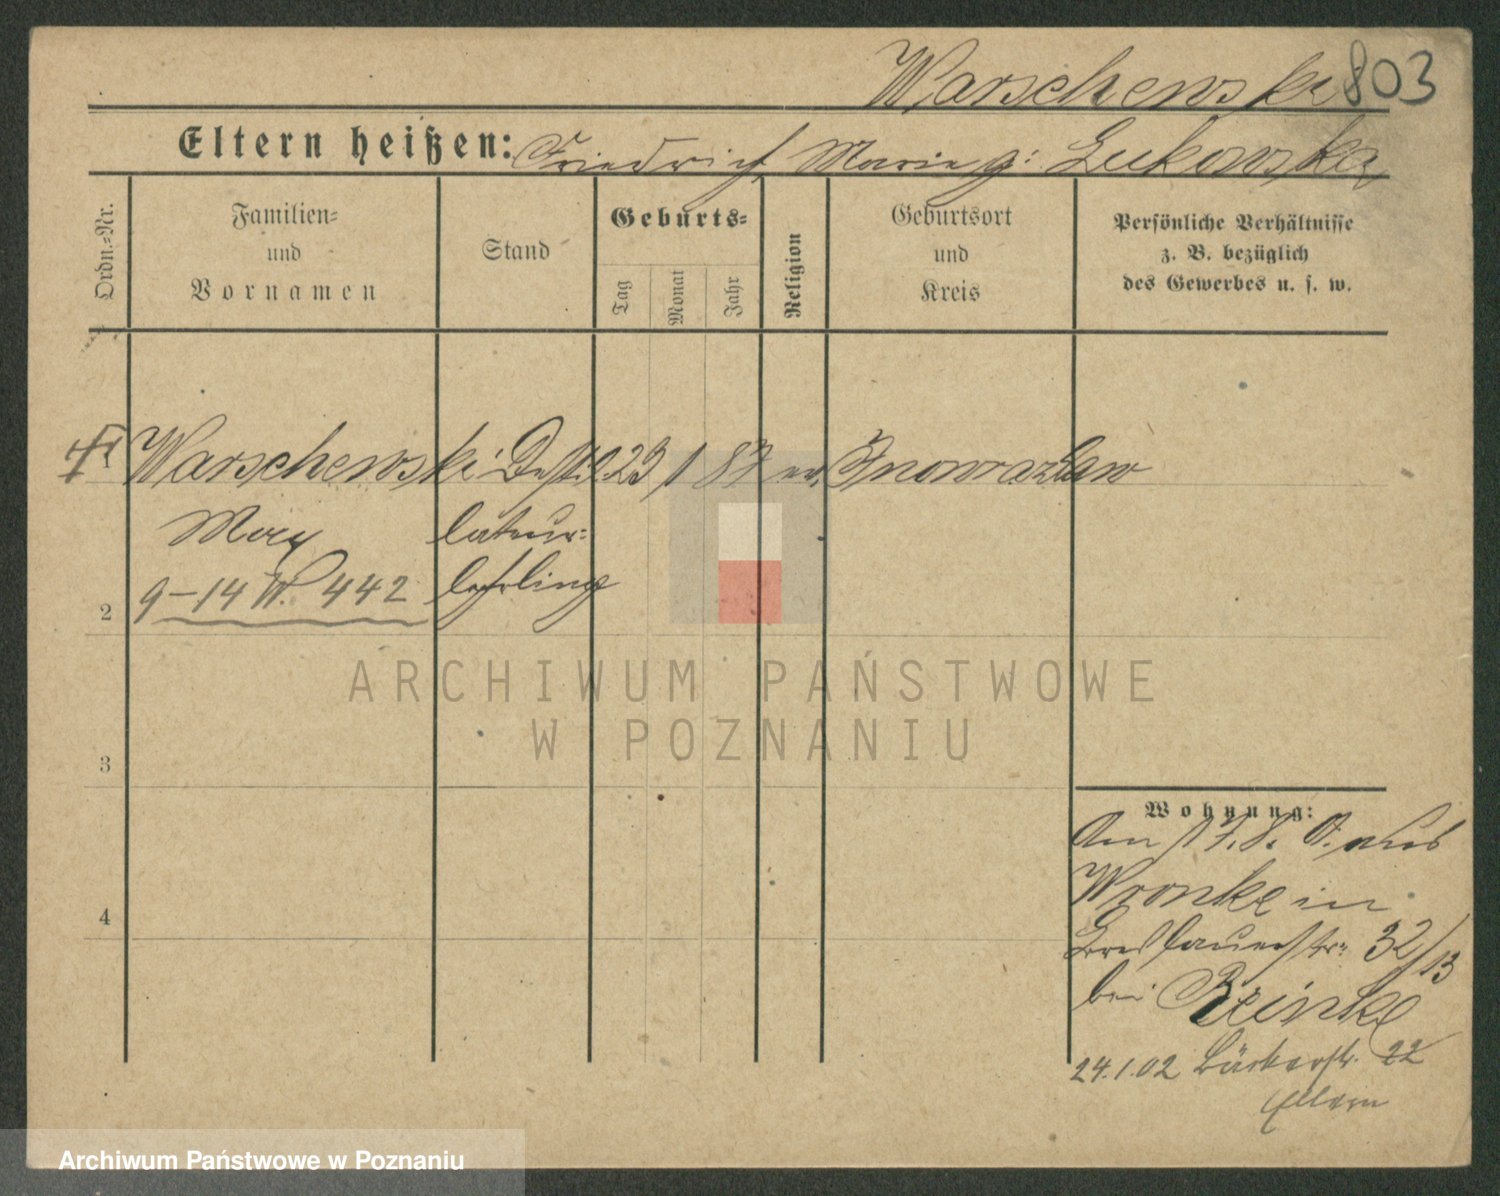 Warschewski 803
Eltern heißen: Friedrich, Marie g: Lukowska
Ordn.=Nr.
Familien=
und
Vornamen
Stand
Geburts=
Tag
Monat
Jahr
Religion
Geburtsort
und
Kreis
Persönliche Verhältnisse
z. B. bezüglich
des Gewerbes u. s. w.
1 Warschewski Destil 23 1 87 ev. Inowrazlaw
Max lateur=
2 9–14 W. 442 lehrling
ARCHIWUM PAŃSTWOWE
W POZNANIU
3
Wohnung:
Am 17.8. 01. aus
Wronke in
4
Breslauerstr. 32/13
bei Reinke
24.1.02 Bäckerstr. 22
Eltern
Archiwum Państwowe w Poznaniu